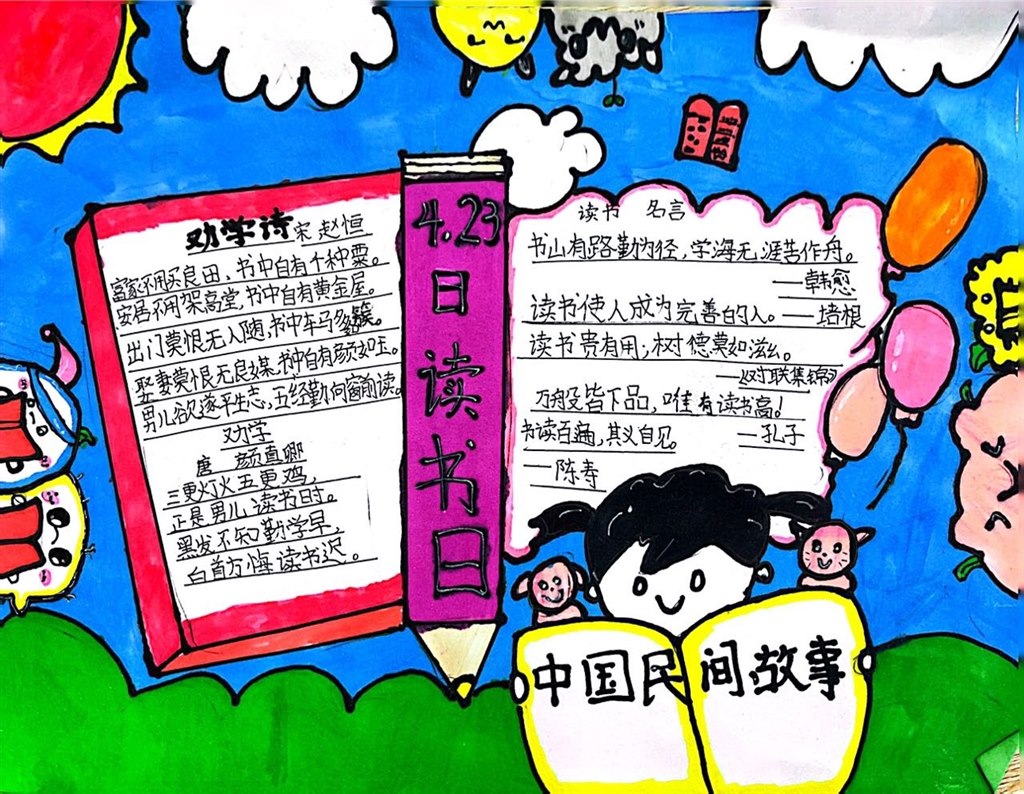 劝学诗 宋 赵恒
富家不用买良田，书中自有千种粟。
安居不用架高堂，书中自有黄金屋。
出门莫恨无人随，书中车马多簇。
娶妻莫恨无良媒，书中自有颜如玉。
男儿欲遂平生志，五经勤向窗前读。
劝学
唐 颜真卿
三更灯火五更鸡，
正是男儿读书时。
黑发不知勤学早，
白首方悔读书迟。
4.23
日
读
书
日
读书 名言
书山有路勤为径，学海无涯苦作舟。
——韩愈
读书使人成为完善的人。——培根
读书贵有用，树德莫如滋。
——《对联集锦》
万般皆下品，唯有读书高！
——孔子
书读百遍，其义自见
——陈寿
中国民间故事